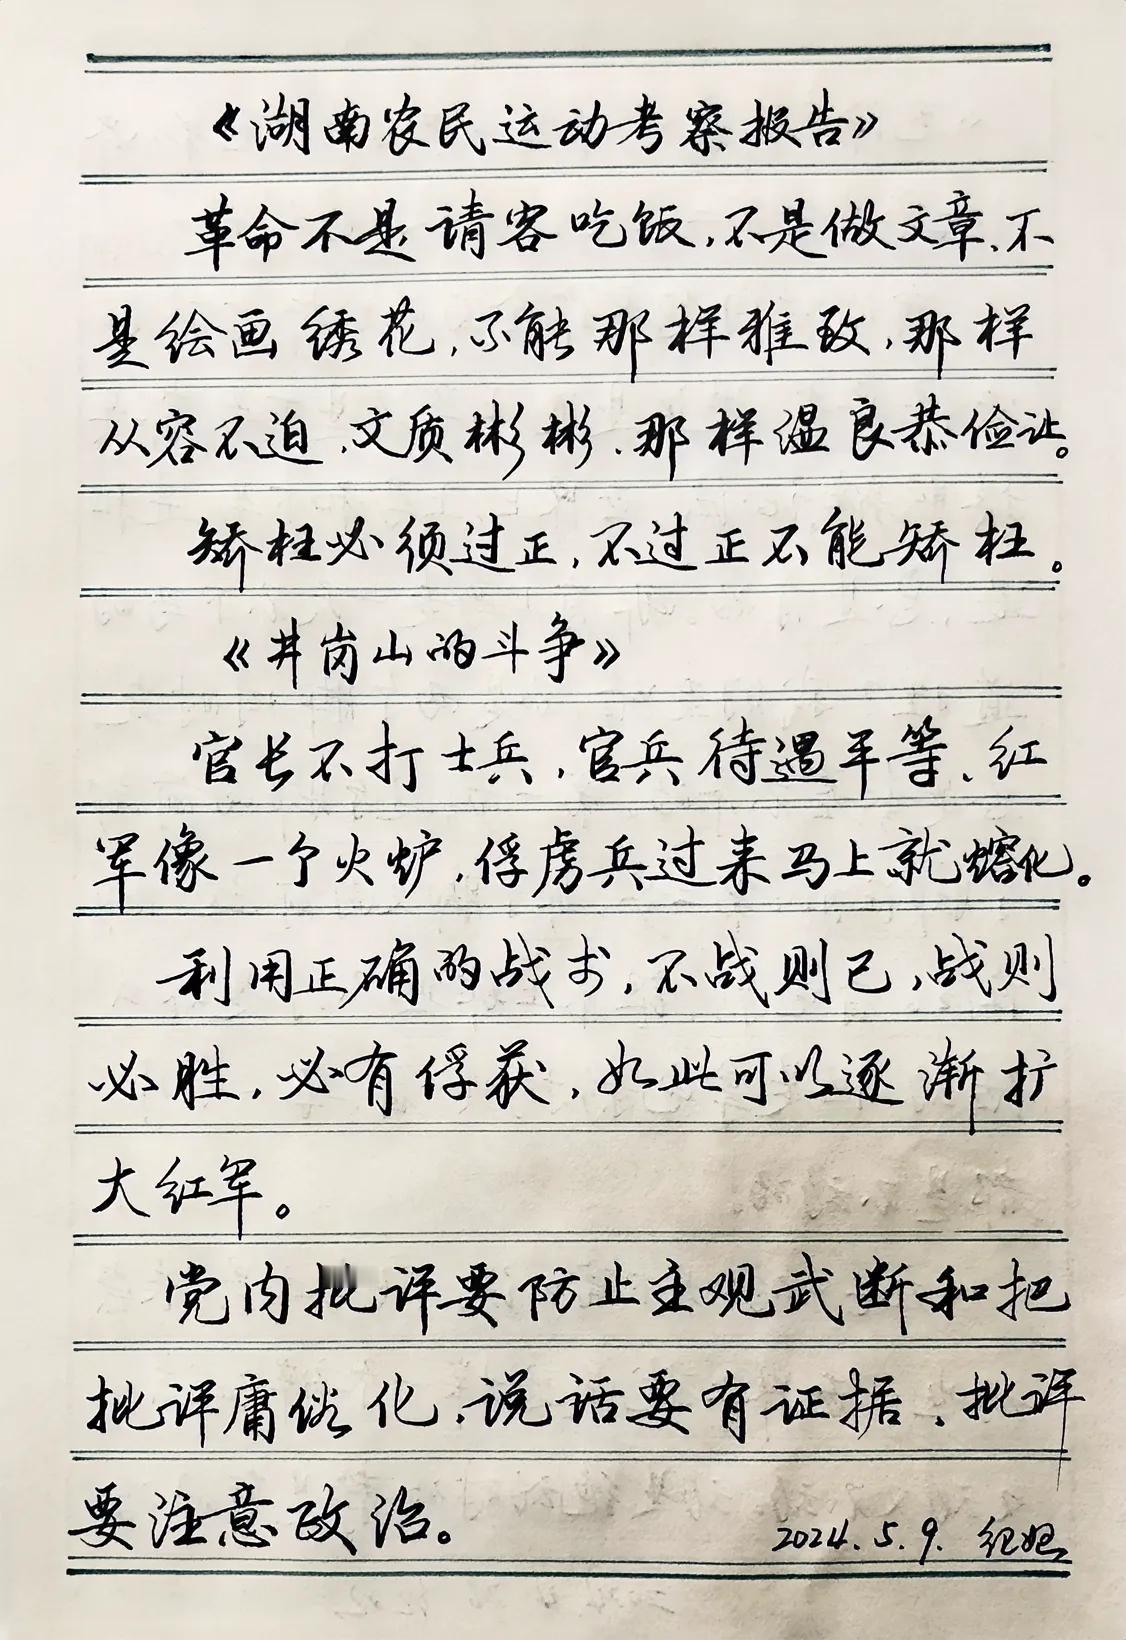 《湖南农民运动考察报告》
革命不是请客吃饭,不是做文章、不
是绘画绣花,不能那样雅致,那样
从容不迫、文质彬彬、那样温良恭俭让。
矫枉必须过正,不过正不能矫枉。
《井岗山的斗争》
官长不打士兵,官兵待遇平等、红
军像一个火炉,俘虏兵过来马上就熔化。
利用正确的战术,不战则已,战则
必胜,必有俘获,如此可以逐渐扩
大红军。
党内批评要防止主观武断和把
批评庸俗化、说话要有证据、批评
要注意政治。
2024.5.9.